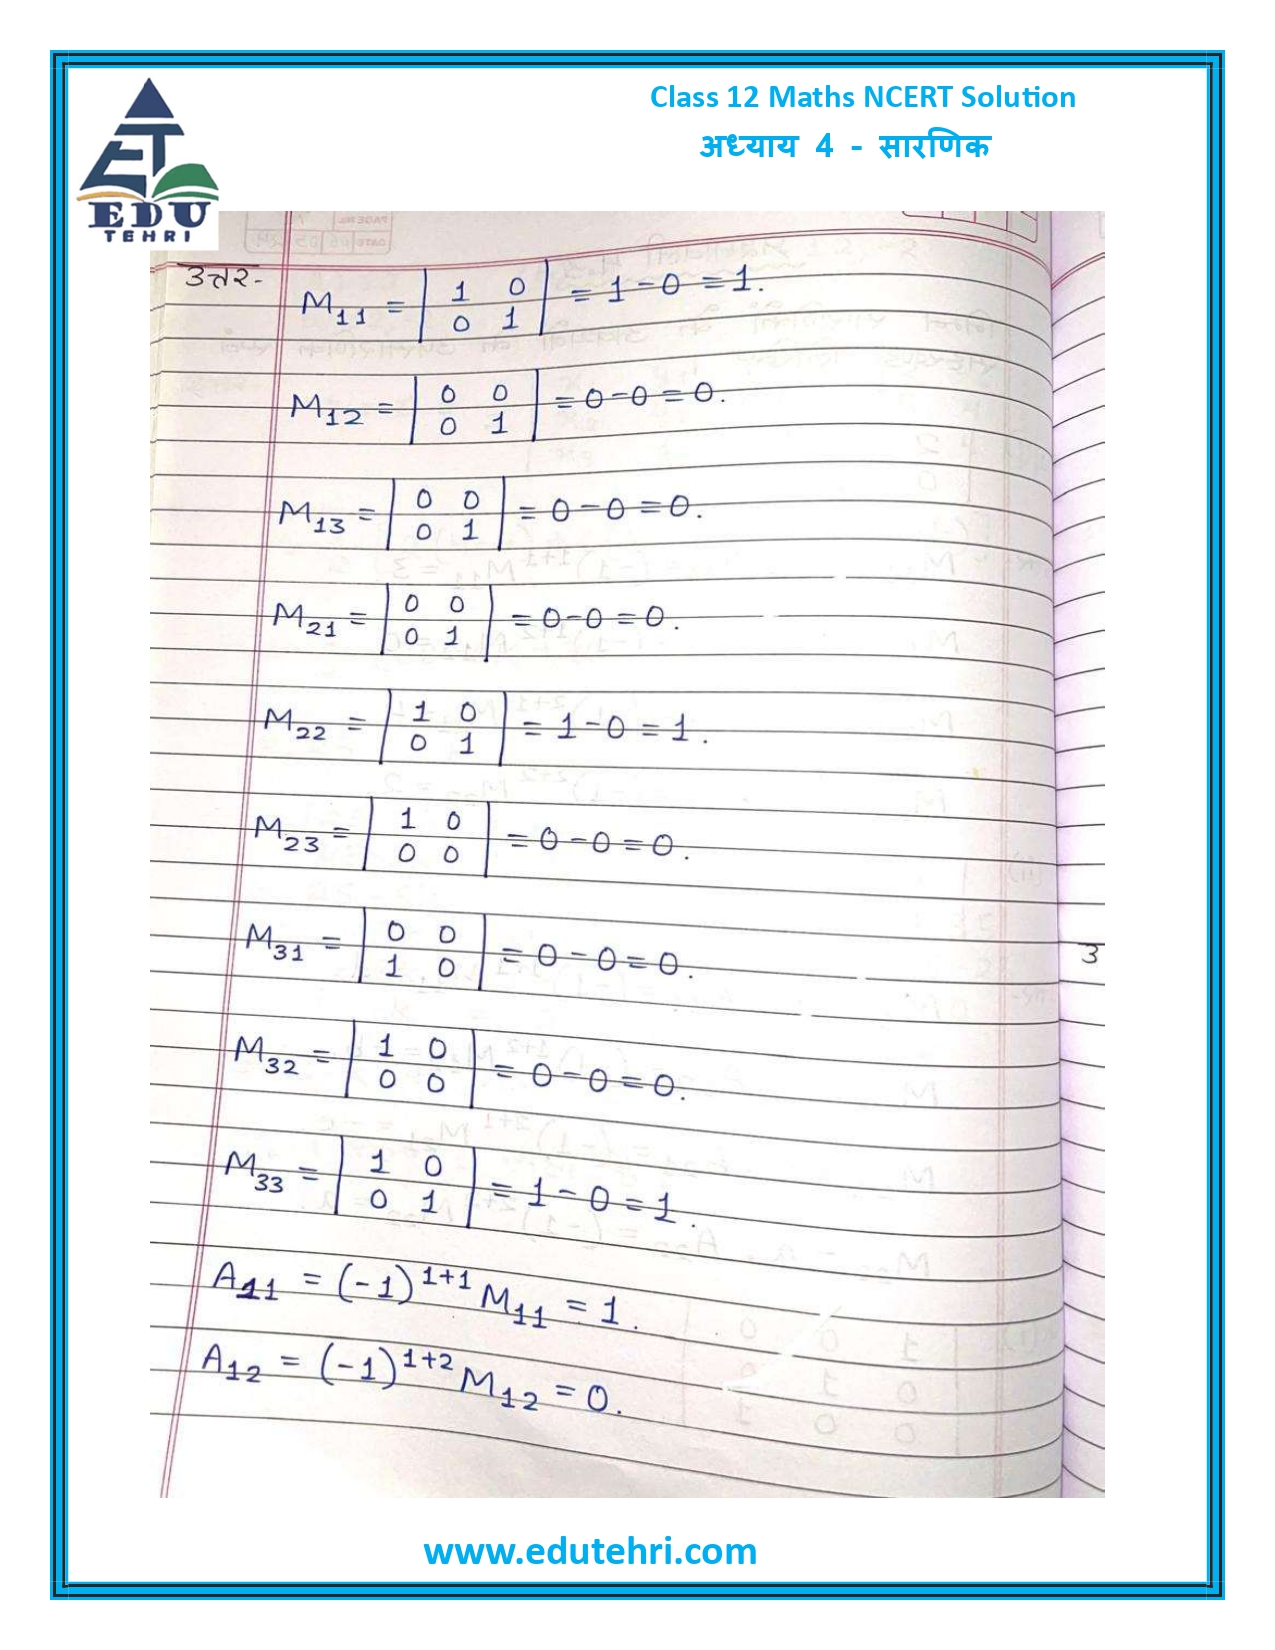 Class 12 Maths NCERT Solution
अध्याय 4 - सारणिक
EDU
TEHRI
उत्तर-
M₁₁ = | 1 0 ; 0 1 | = 1 - 0 = 1.
M₁₂ = | 0 0 ; 0 1 | = 0 - 0 = 0.
M₁₃ = | 0 0 ; 0 1 | = 0 - 0 = 0.
M₂₁ = | 0 0 ; 0 1 | = 0 - 0 = 0.
M₂₂ = | 1 0 ; 0 1 | = 1 - 0 = 1.
M₂₃ = | 1 0 ; 0 0 | = 0 - 0 = 0.
M₃₁ = | 0 0 ; 1 0 | = 0 - 0 = 0.
M₃₂ = | 1 0 ; 0 0 | = 0 - 0 = 0.
M₃₃ = | 1 0 ; 0 1 | = 1 - 0 = 1.
A₁₁ = (-1)¹⁺¹ M₁₁ = 1.
A₁₂ = (-1)¹⁺² M₁₂ = 0.
www.edutehri.com